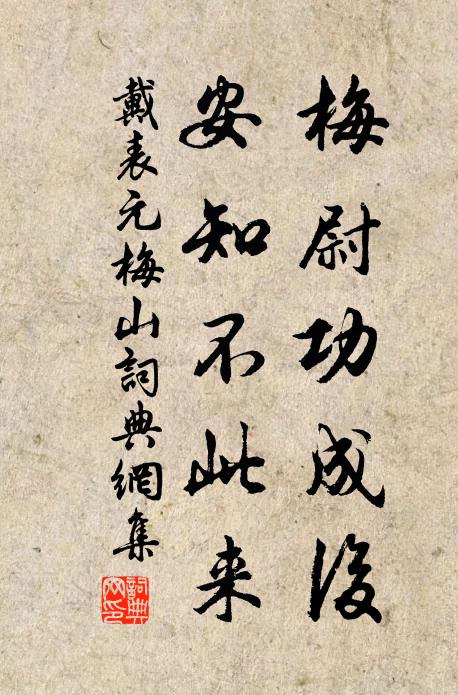 梅尉功成後
安知不此来
戴表元梅山詞典網集
詞典网印